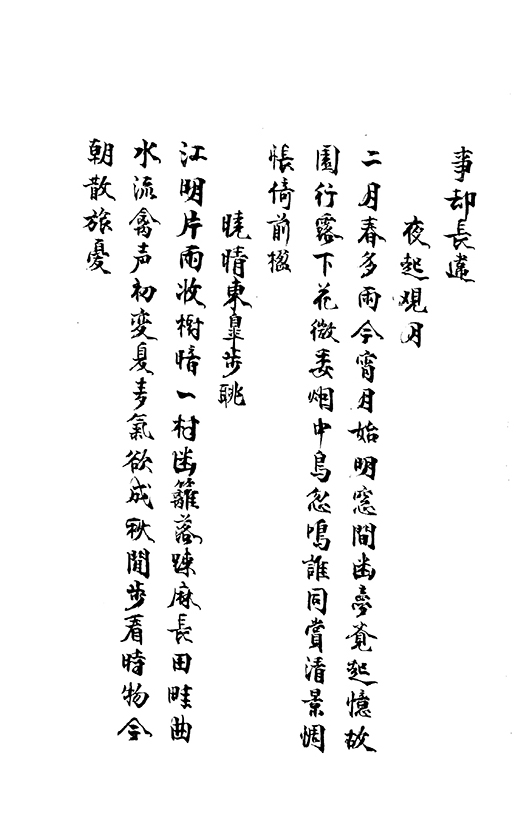 事却長違
夜起覌月
二月春多雨今宵月始明窓間幽夢覚起憶故
園行露下花微委烟中鳥忽鳴誰同賞清景惆
悵倚前楹
暁晴東皐步眺
江明片雨收樹暗一村幽籬落踈麻長田畦曲
水流禽声初变夏麦氣欲成秋閒步看時物今
朝散旅憂